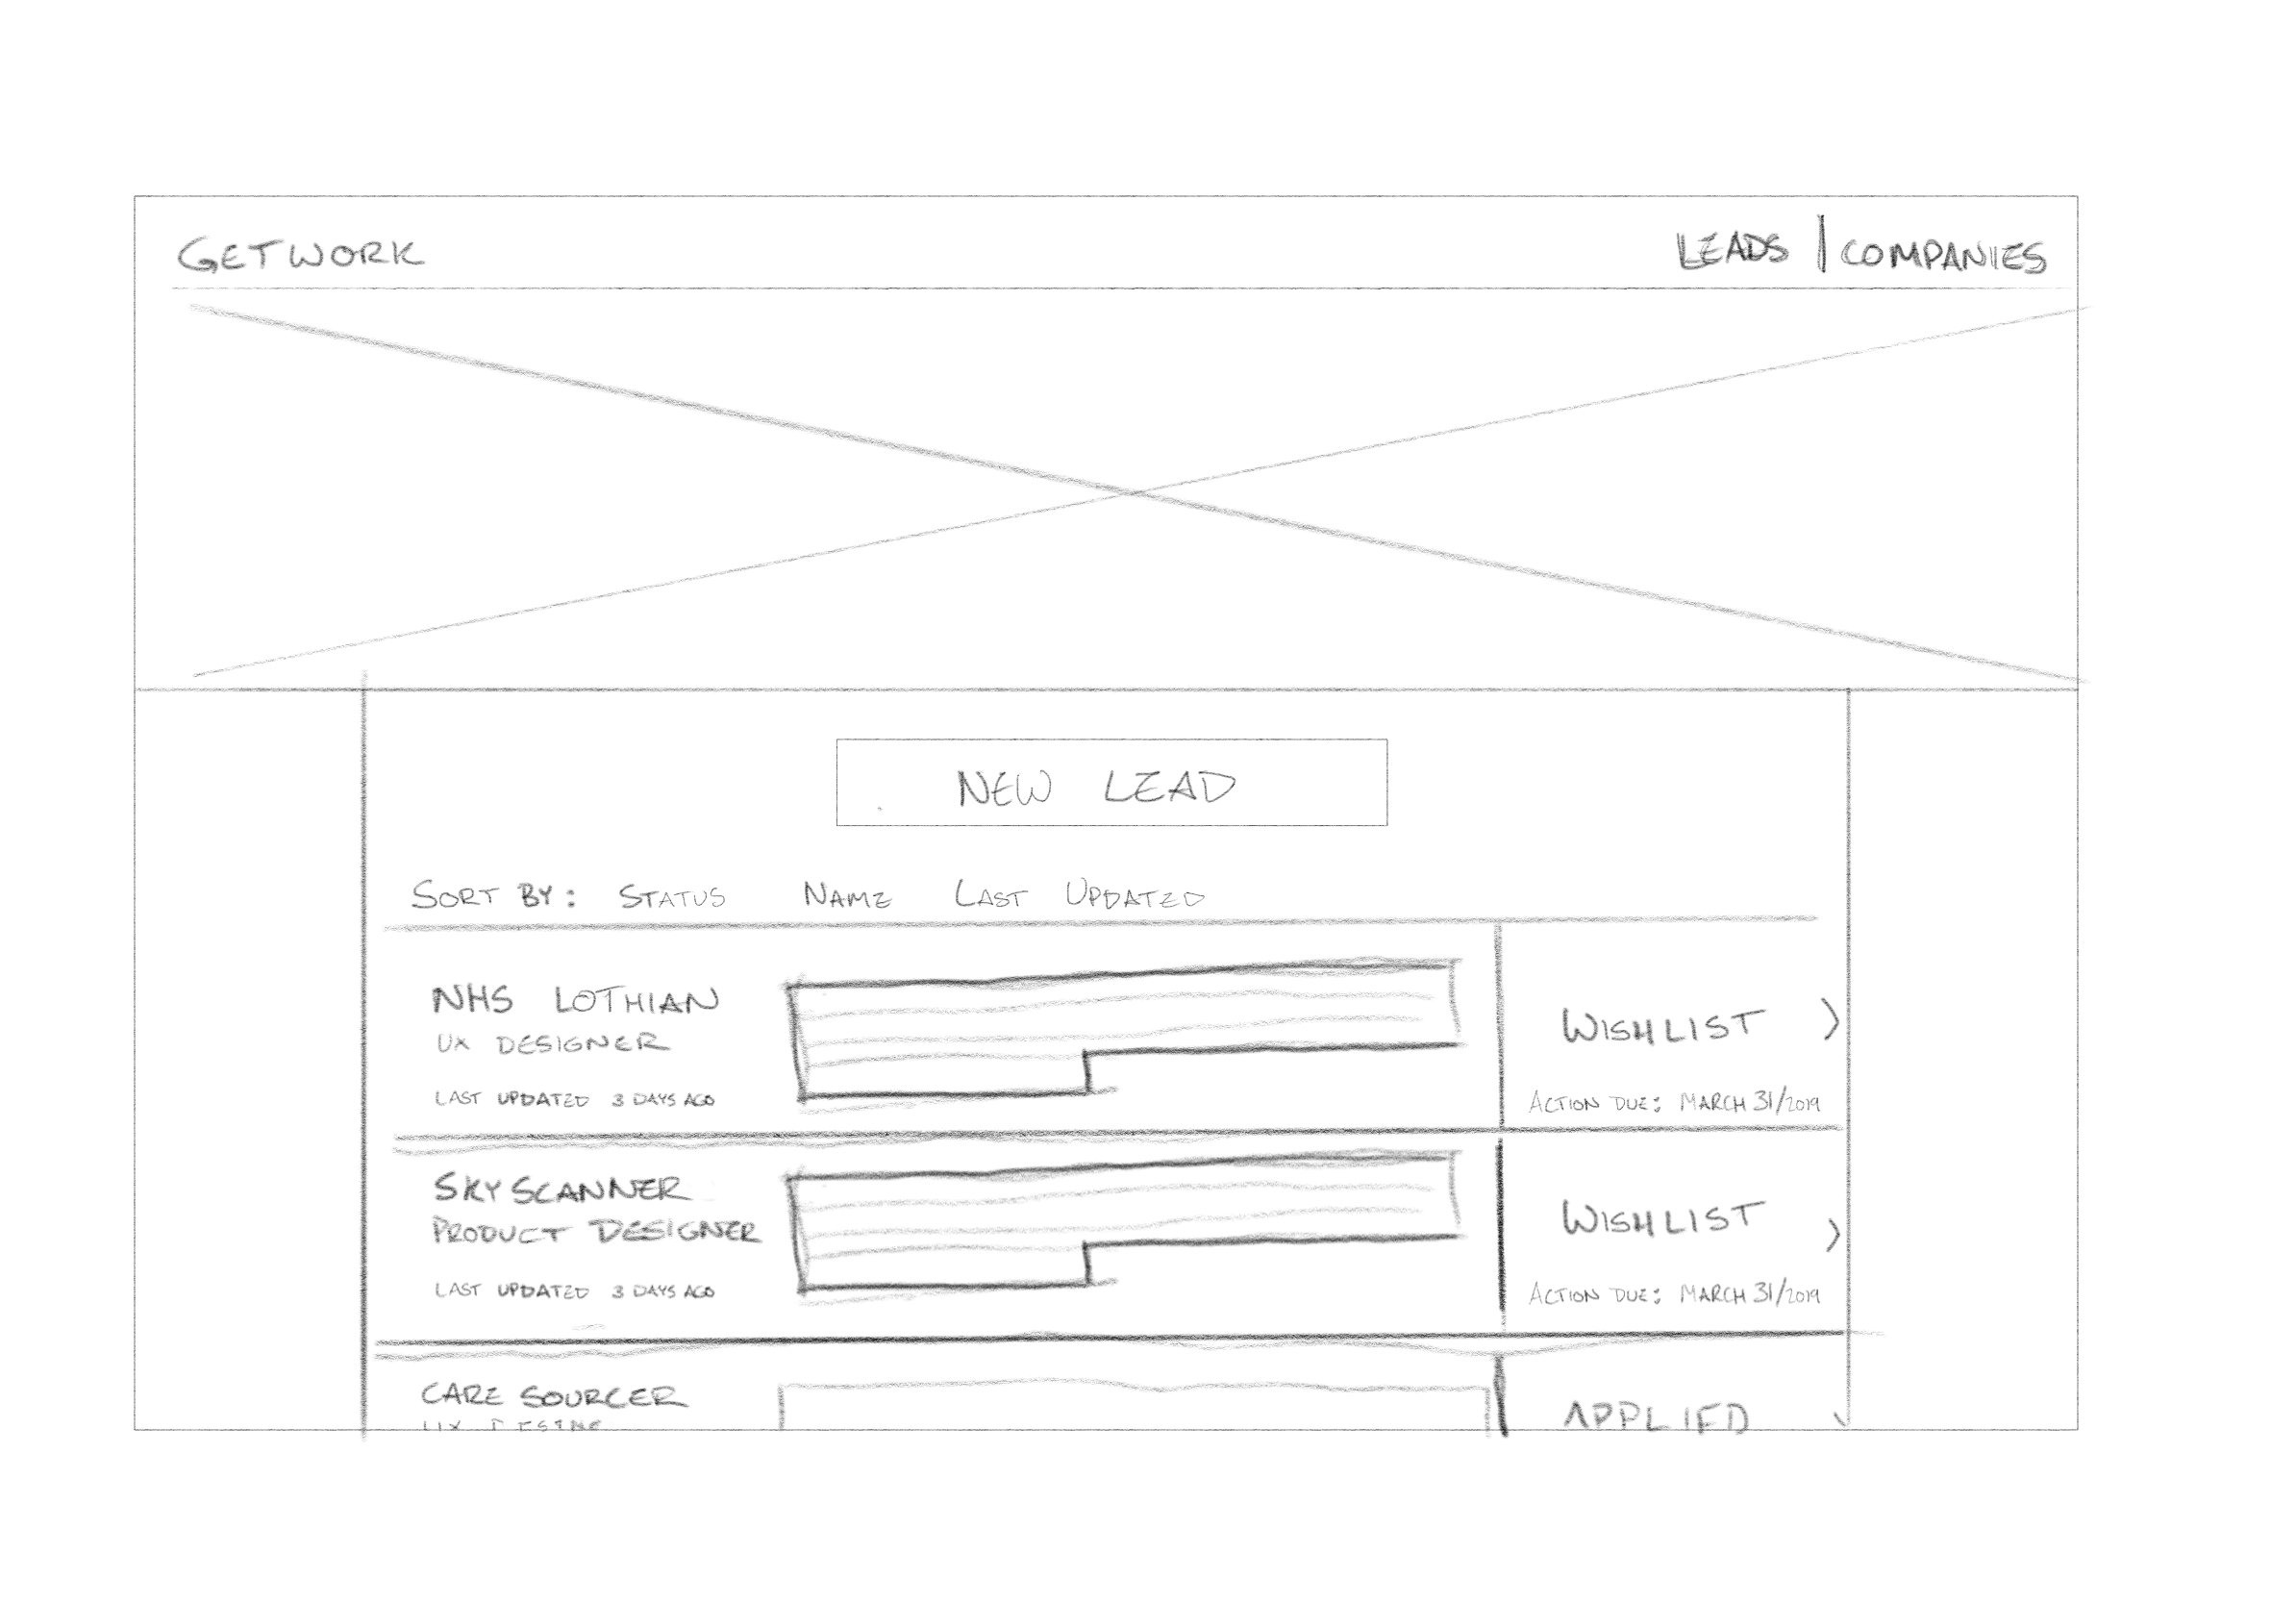 GETWORK
LEADS | COMPANIES
NEW LEAD
SORT BY: STATUS NAME LAST UPDATED
NHS LOTHIAN
UX DESIGNER
LAST UPDATED 3 DAYS AGO
WISHLIST >
ACTION DUE: MARCH 31/2019
SKYSCANNER
PRODUCT DESIGNER
LAST UPDATED 3 DAYS AGO
WISHLIST >
ACTION DUE: MARCH 31/2019
CARE SOURCER
UX
APPLIED